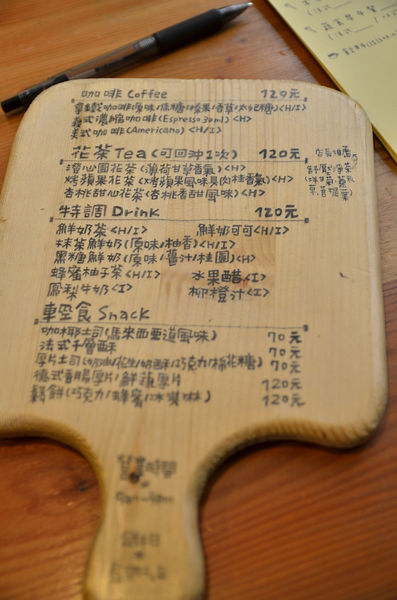 咖啡 Coffee 120元
拿鐵咖啡(原味/焦糖/榛果/香草/太妃糖)<H/I>
義式濃縮咖啡(Espresso 30ml)<H>
美式咖啡(Americano)<H/I>
花茶 Tea(可回沖1次) 120元
澄心園花茶(薄荷甘草香氣)<H>
烤蘋果花茶(烤蘋果風味與肉桂香氣)<H>
杏桃甜心花茶(杏桃香甜風味)<H>
店長推薦
特調 Drink 120元
鮮奶茶<H/I> 鮮奶可可<H/I>
抹茶鮮奶(原味/柚香)<H/I>
黑糖鮮奶(原味/薑汁/桂圓)<H>
蜂蜜柚子茶<H/I> 水果醋<I>
鳳梨牛奶<I> 柳橙汁<I>
輕食 Snack
咖椰土司(馬來西亞道風味) 70元
法式千層酥 70元
厚片土司(奶油/花生/奶酥/巧克力/棉花糖) 70元
德式香腸厚片/鮮蔬厚片 120元
鬆餅(巧克力/蜂蜜/冰淇淋) 120元
營業時間